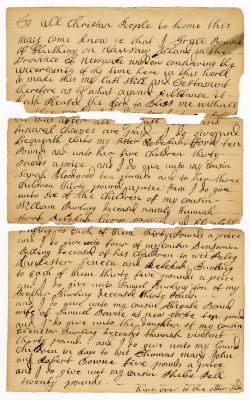 To All Christian People to home this
may come know ye that I Grace Bowne
of Flushing on Nassaw Island in the
Province of Newyork widow considering the
uncertainty of my time here in this world
do make this my last Will and Testament
therefore as to what
hath pleased the Lord to Bless me withall
after all Just
funeral Charges are paid I do give and
Bequeath unto my sister Rebekah Ford ten
Pound and to her five Children thirty
Pounds a peice and I do give unto my Cousin
Sarah Bloodgood ten pounds and to her three
Children thirty pounds a peice Item I do give
unto the Children of my cousin
William Burling Deceased namely Hannah
Sarah Rebekah
to each of them thirty Pounds a peice
and I do give unto four of my Cousin Benjamin
Burling Deceased of his Children to wit
and Rebekah Burling
to each of them thirty five pounds a peice
and I do give unto Samuel Burling son of my
Brother Burling Deceased thirty Pounds
and I do give unto my Cousin Bowne
wife of Samuel Bowne at New york ten pound
and I do give unto the daughter of my cousin
Burling Deceased Hannah
thirty pounds and I do give unto my Cousin
Children Thomas Mary John
and Robert Bowne five pounds a peice
and I do give unto my Cousin Phebe
twenty pounds
Turn over to the other side